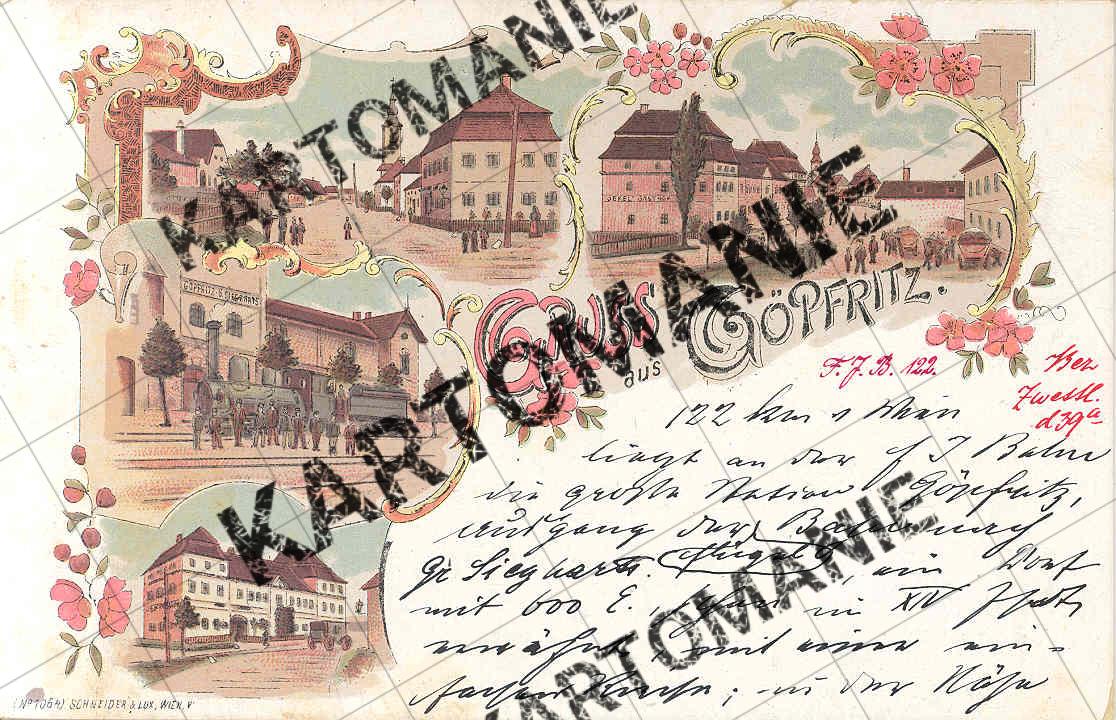 KARTOMANIE
KARTOMANIE
KARTOMANIE
JEKEL GASTHOF
GÖPFRITZ-G. SIEGHARTS
GRUSS
aus GÖPFRITZ.
F. J. B. 122.
Bez
Zwettl.
d39a
122 km v Wien
liegt an der f J Bahn
die große Station Göpfritz,
Ausgang der Bahn nach
Gr Siegharts. , ein Dorf
mit 600 E., schon im XIV Jhdt
erwähnt, mit einer ein-
fachen Kirche; in der Nähe
(No 1064) SCHNEIDER & LUX, WIEN, V